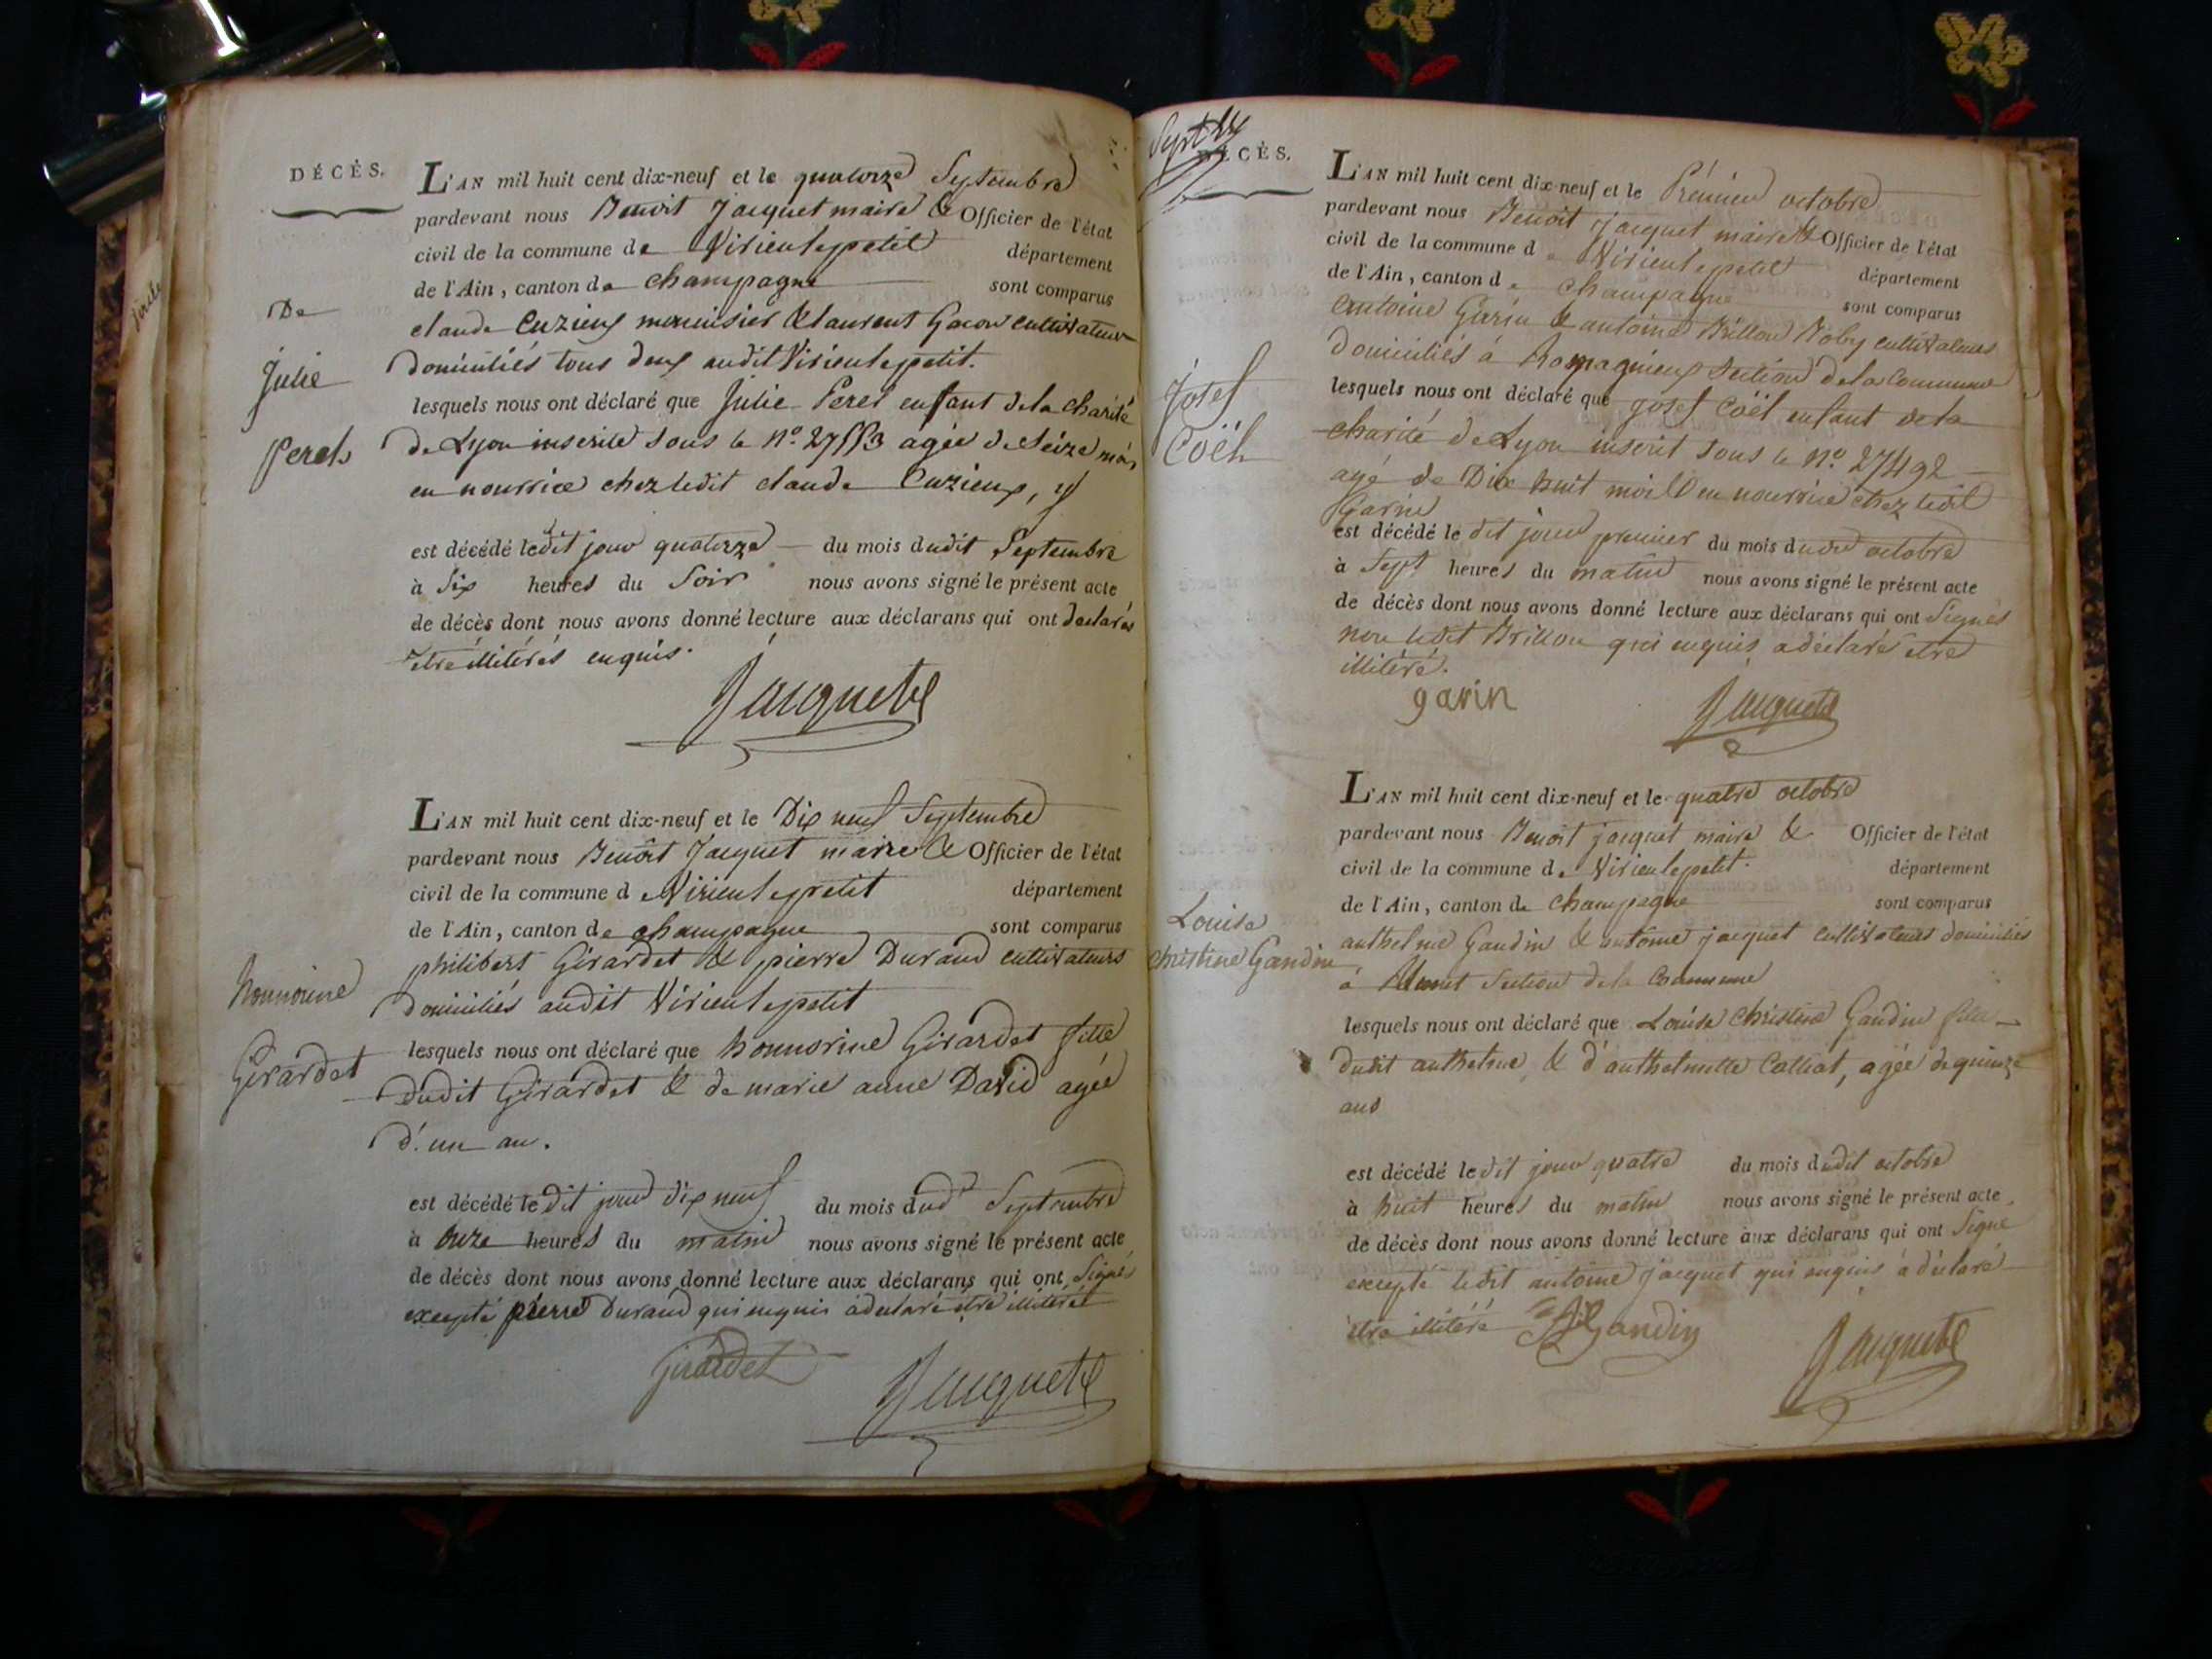 DÉCÈS.
L'AN mil huit cent dix-neuf et le quatorze Septembre
pardevant nous Benoit Jacquet maire & Officier de l'état
civil de la commune de Virieulepetit département
de l'Ain, canton de Champagne sont comparus
claude Cuzieux menuisier & laurent Gacon cultivateur
Domiciliés tous deux audit Virieulepetit.
lesquels nous ont déclaré que Julie Peres enfant de la charité
de Lyon inscrite sous le No. agée de Séize mois
en nourrice chez ledit claude Cuzieux,
De
Julie
est décédé ledit jour quatorze du mois dudit Septembre
à Six heures du Soir nous avons signé le présent acte
de décès dont nous avons donné lecture aux déclarans qui ont declarés
etre illitérés enquis.
Jacquet
L'AN mil huit cent dix-neuf et le Dix neuf Septembre
pardevant nous Benoit Jacquet maire & Officier de l'état
civil de la commune de Virieulepetit département
de l'Ain, canton de champagne sont comparus
philibert Girardet & pierre Durand cultivateurs
Domiciliés audit Virieulepetit
lesquels nous ont déclaré que honnorine Girardet fille
Dudit Girardet & de marie anne David agée
d'un an.
Honnorine
Girardet
est décédé le dit jour dix neuf du mois dud Septembre
à Onze heures du matin nous avons signé le présent acte
de décès dont nous avons donné lecture aux déclarans qui ont Signés
excepté pierre Durand qui enquis a declaré etre illitéré
girardet
Jacquet
Sept
DÉCÈS.
L'AN mil huit cent dix-neuf et le Prémier octobre
pardevant nous Benoit Jacquet maire & Officier de l'état
civil de la commune de Virieulepetit département
de l'Ain, canton de Champagne sont comparus
antoine Garin & antoine Brillon cultivateurs
Domiciliés à Romagnieux Section de la Commune
lesquels nous ont déclaré que josef Coël enfant de la
charité de Lyon inscrit sous le No. 27492
agé de Dix huit mois en nourrice chez ledit
Garin
Josef
Coël
est décédé le dit jour premier du mois dudit octobre
à Sept heures du matin nous avons signé le présent acte
de décès dont nous avons donné lecture aux déclarans qui ont Signés
non ledit Brillon qui enquis a déclaré etre
illitéré.
garin
Jacquet
L'AN mil huit cent dix-neuf et le quatre octobre
pardevant nous Benoit jacquet maire & Officier de l'état
civil de la commune de Virieulepetit. département
de l'Ain, canton de Champagne sont comparus
anthelme Gandin & antoine jacquet cultivateurs domiciliés
à Section de la Commune
lesquels nous ont déclaré que Louise Christine Gandin fille
dudit anthelme & d'anthelmette Calliat, agée de quinze
ans
Louise
Christine Gandin
est décédé le dit jour quatre du mois dudit octobre
à huit heures du matin nous avons signé le présent acte
de décès dont nous avons donné lecture aux déclarans qui ont Signé
excepté ledit antoine jacquet qui enquis à déclaré
etre illitéré
gandin
Jacquet